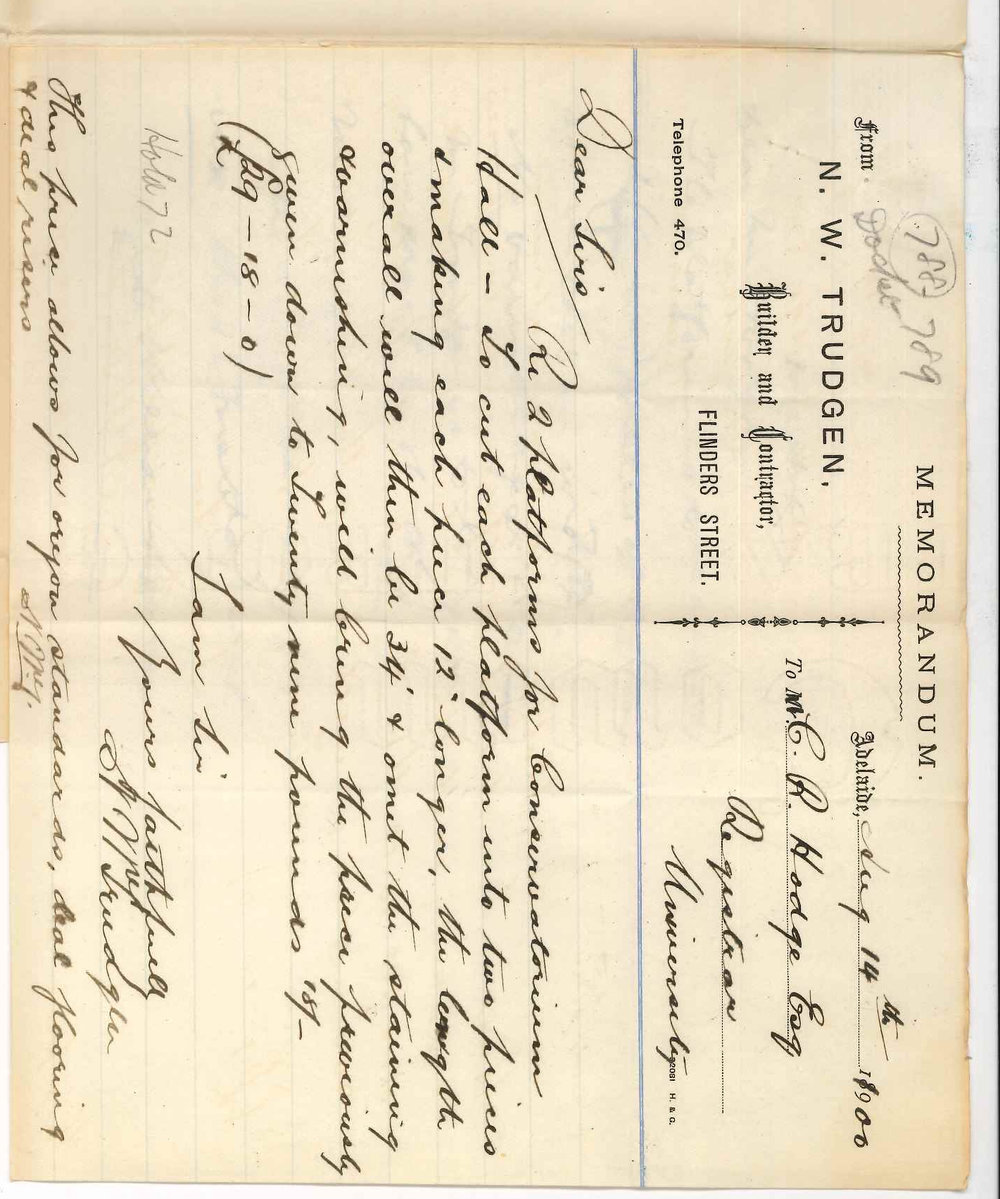 MEMORANDUM.
788/789
Docket
From
N. W. TRUDGEN,
Builder and Contractor,
FLINDERS STREET.
Telephone 470.
Adelaide, Aug 14th 1900
To Mr. C. R. Hodge Esq
Registrar
University
H. & G.
Dear Sir
Re 2 platforms for Conservatorium
Hall – To cut each platform into two pieces
& making each piece 12" longer, the length
overall will then be 34' & omit the staining
& varnishing, will bring the price previously
given down to Twenty nine pounds 18/-
(£29-18-0)
I am Sir
Yours faithfully
N W Trudgen
This price allows for oregon standards, deal flooring
& deal risers N.W.T.